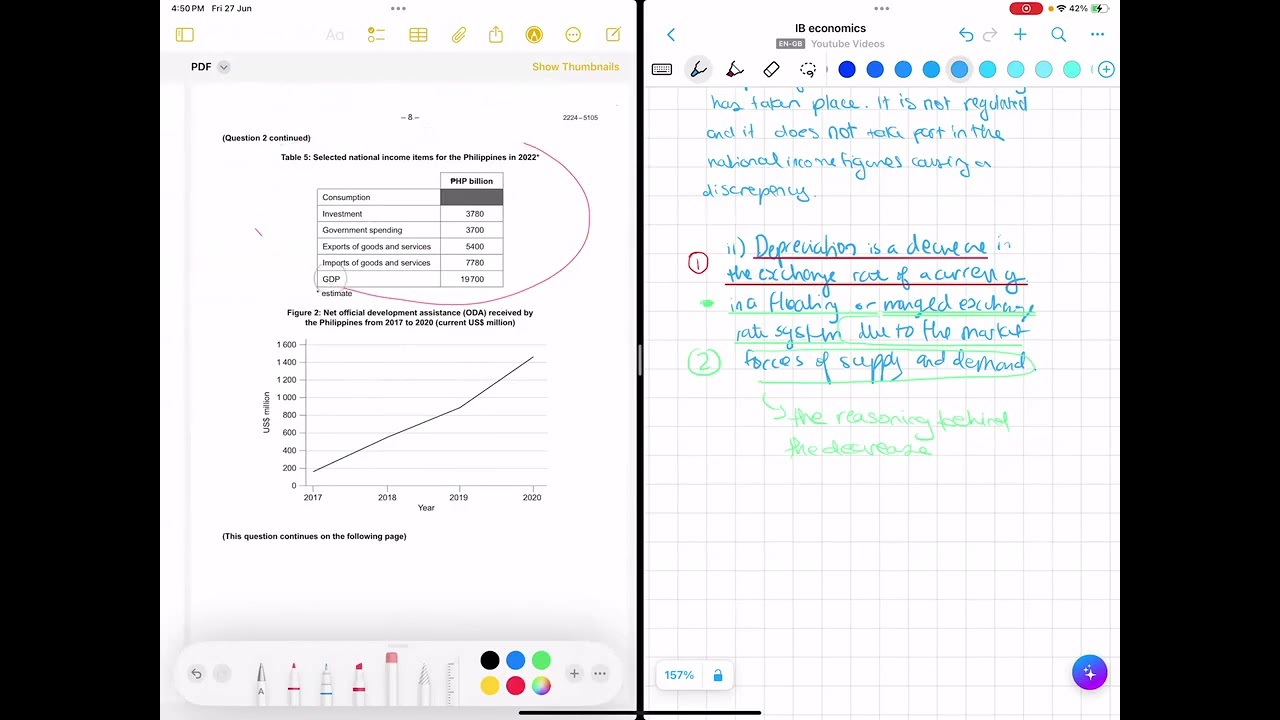 4:50 PM Fri 27 Jun
42%
Aa
PDF
Show Thumbnails
– 8 –
2224–5105
(Question 2 continued)
Table 5: Selected national income items for the Philippines in 2022*
₱HP billion
Consumption
Investment 3780
Government spending 3700
Exports of goods and services 5400
Imports of goods and services 7780
GDP 19700
* estimate
Figure 2: Net official development assistance (ODA) received by
the Philippines from 2017 to 2020 (current US$ million)
1 600
1 400
1 200
1 000
800
600
400
200
0
US$ million
2017 2018 2019 2020
Year
(This question continues on the following page)
A
IB economics
EN-GB Youtube Videos
has taken place. It is not regulated
and it does not take part in the
national income figures causing a
discrepency.
ii) Depreciation is a decrease in
1
the exchange rate of a currency
in a floating or managed exchange
rate system due to the market
2 forces of supply and demand
the reasoning behind
the decrease
157%